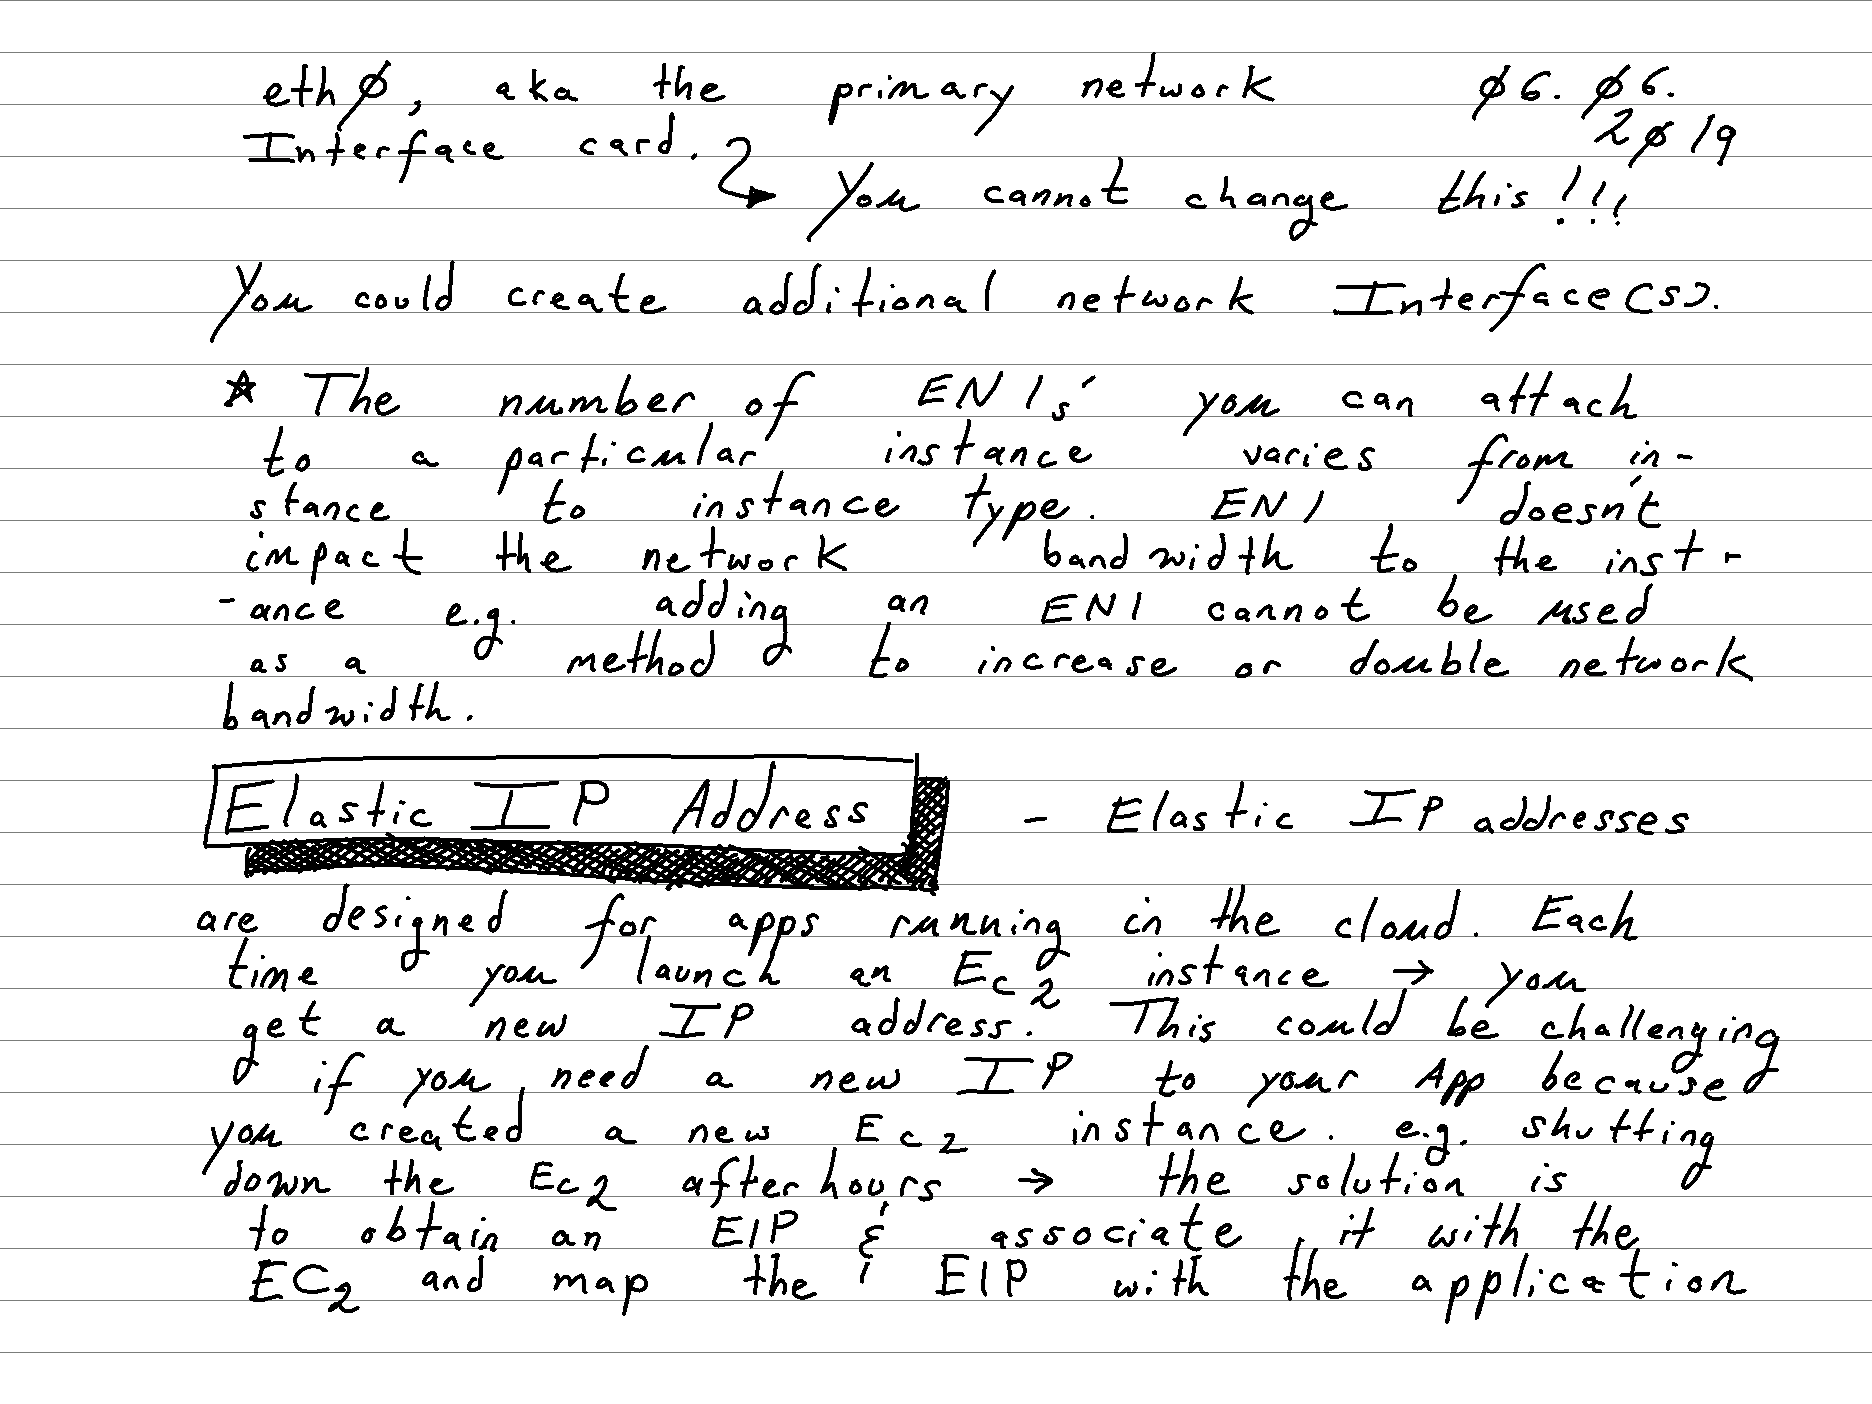 ethØ, aka the primary network Ø6. Ø6.
2Ø19
Interface card.
You cannot change this!!!
You could create additional network Interface(s).
☆ The number of ENIs' you can attach
to a particular instance varies from in-
stance to instance type. ENI doesn't
impact the network bandwidth to the inst-
-ance e.g. adding an ENI cannot be used
as a method to increase or double network
bandwidth.
Elastic IP Address - Elastic IP addresses
are designed for apps running in the cloud. Each
time you launch an Ec2 instance → you
get a new IP address. This could be challenging
if you need a new IP to your App because
you created a new Ec2 instance. e.g. shutting
down the Ec2 after hours → the solution is
to obtain an EIP & associate it with the
EC2 and map the EIP with the application